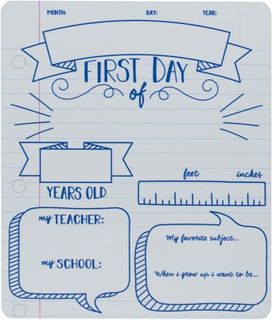 MONTH: DAY: YEAR:
FIRST DAY
of
YEARS OLD
feet inches
my TEACHER:
my SCHOOL:
My favorite subject...
When i grow up i want to be...